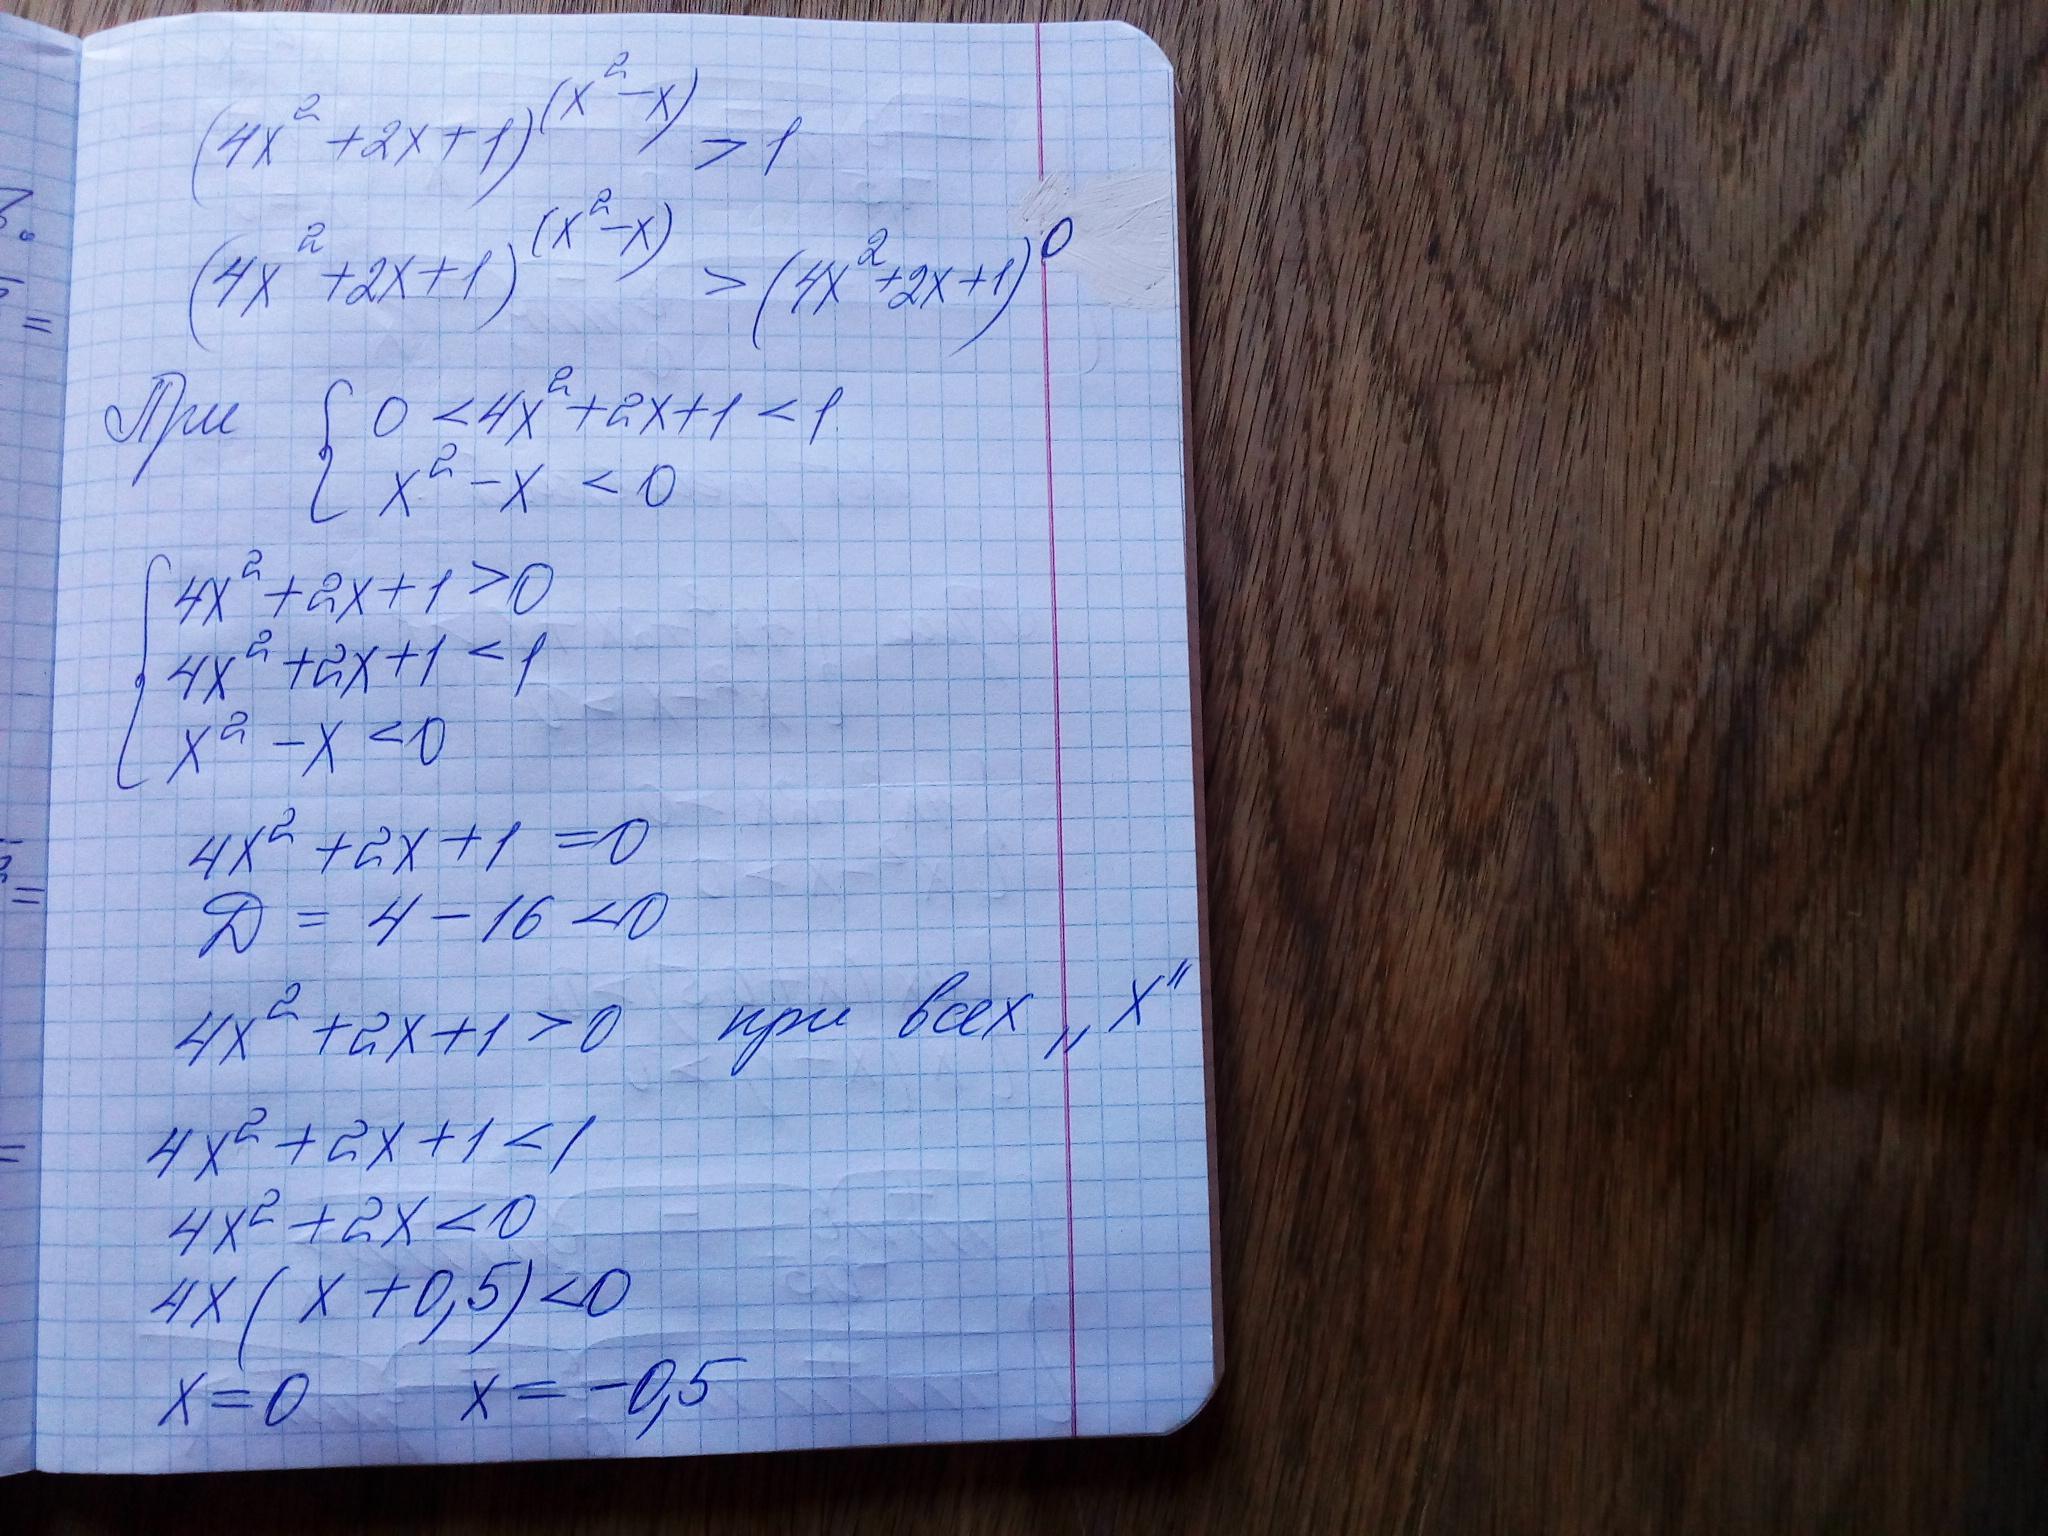 (4x² + 2x + 1)^(x² - x) > 1
(4x² + 2x + 1)^(x² - x) > (4x² + 2x + 1)^0
При { 0 < 4x² + 2x + 1 < 1
x² - x < 0
{ 4x² + 2x + 1 > 0
4x² + 2x + 1 < 1
x² - x < 0
4x² + 2x + 1 = 0
Д = 4 - 16 < 0
4x² + 2x + 1 > 0 при всех „x"
4x² + 2x + 1 < 1
4x² + 2x < 0
4x(x + 0,5) < 0
x = 0 x = -0,5